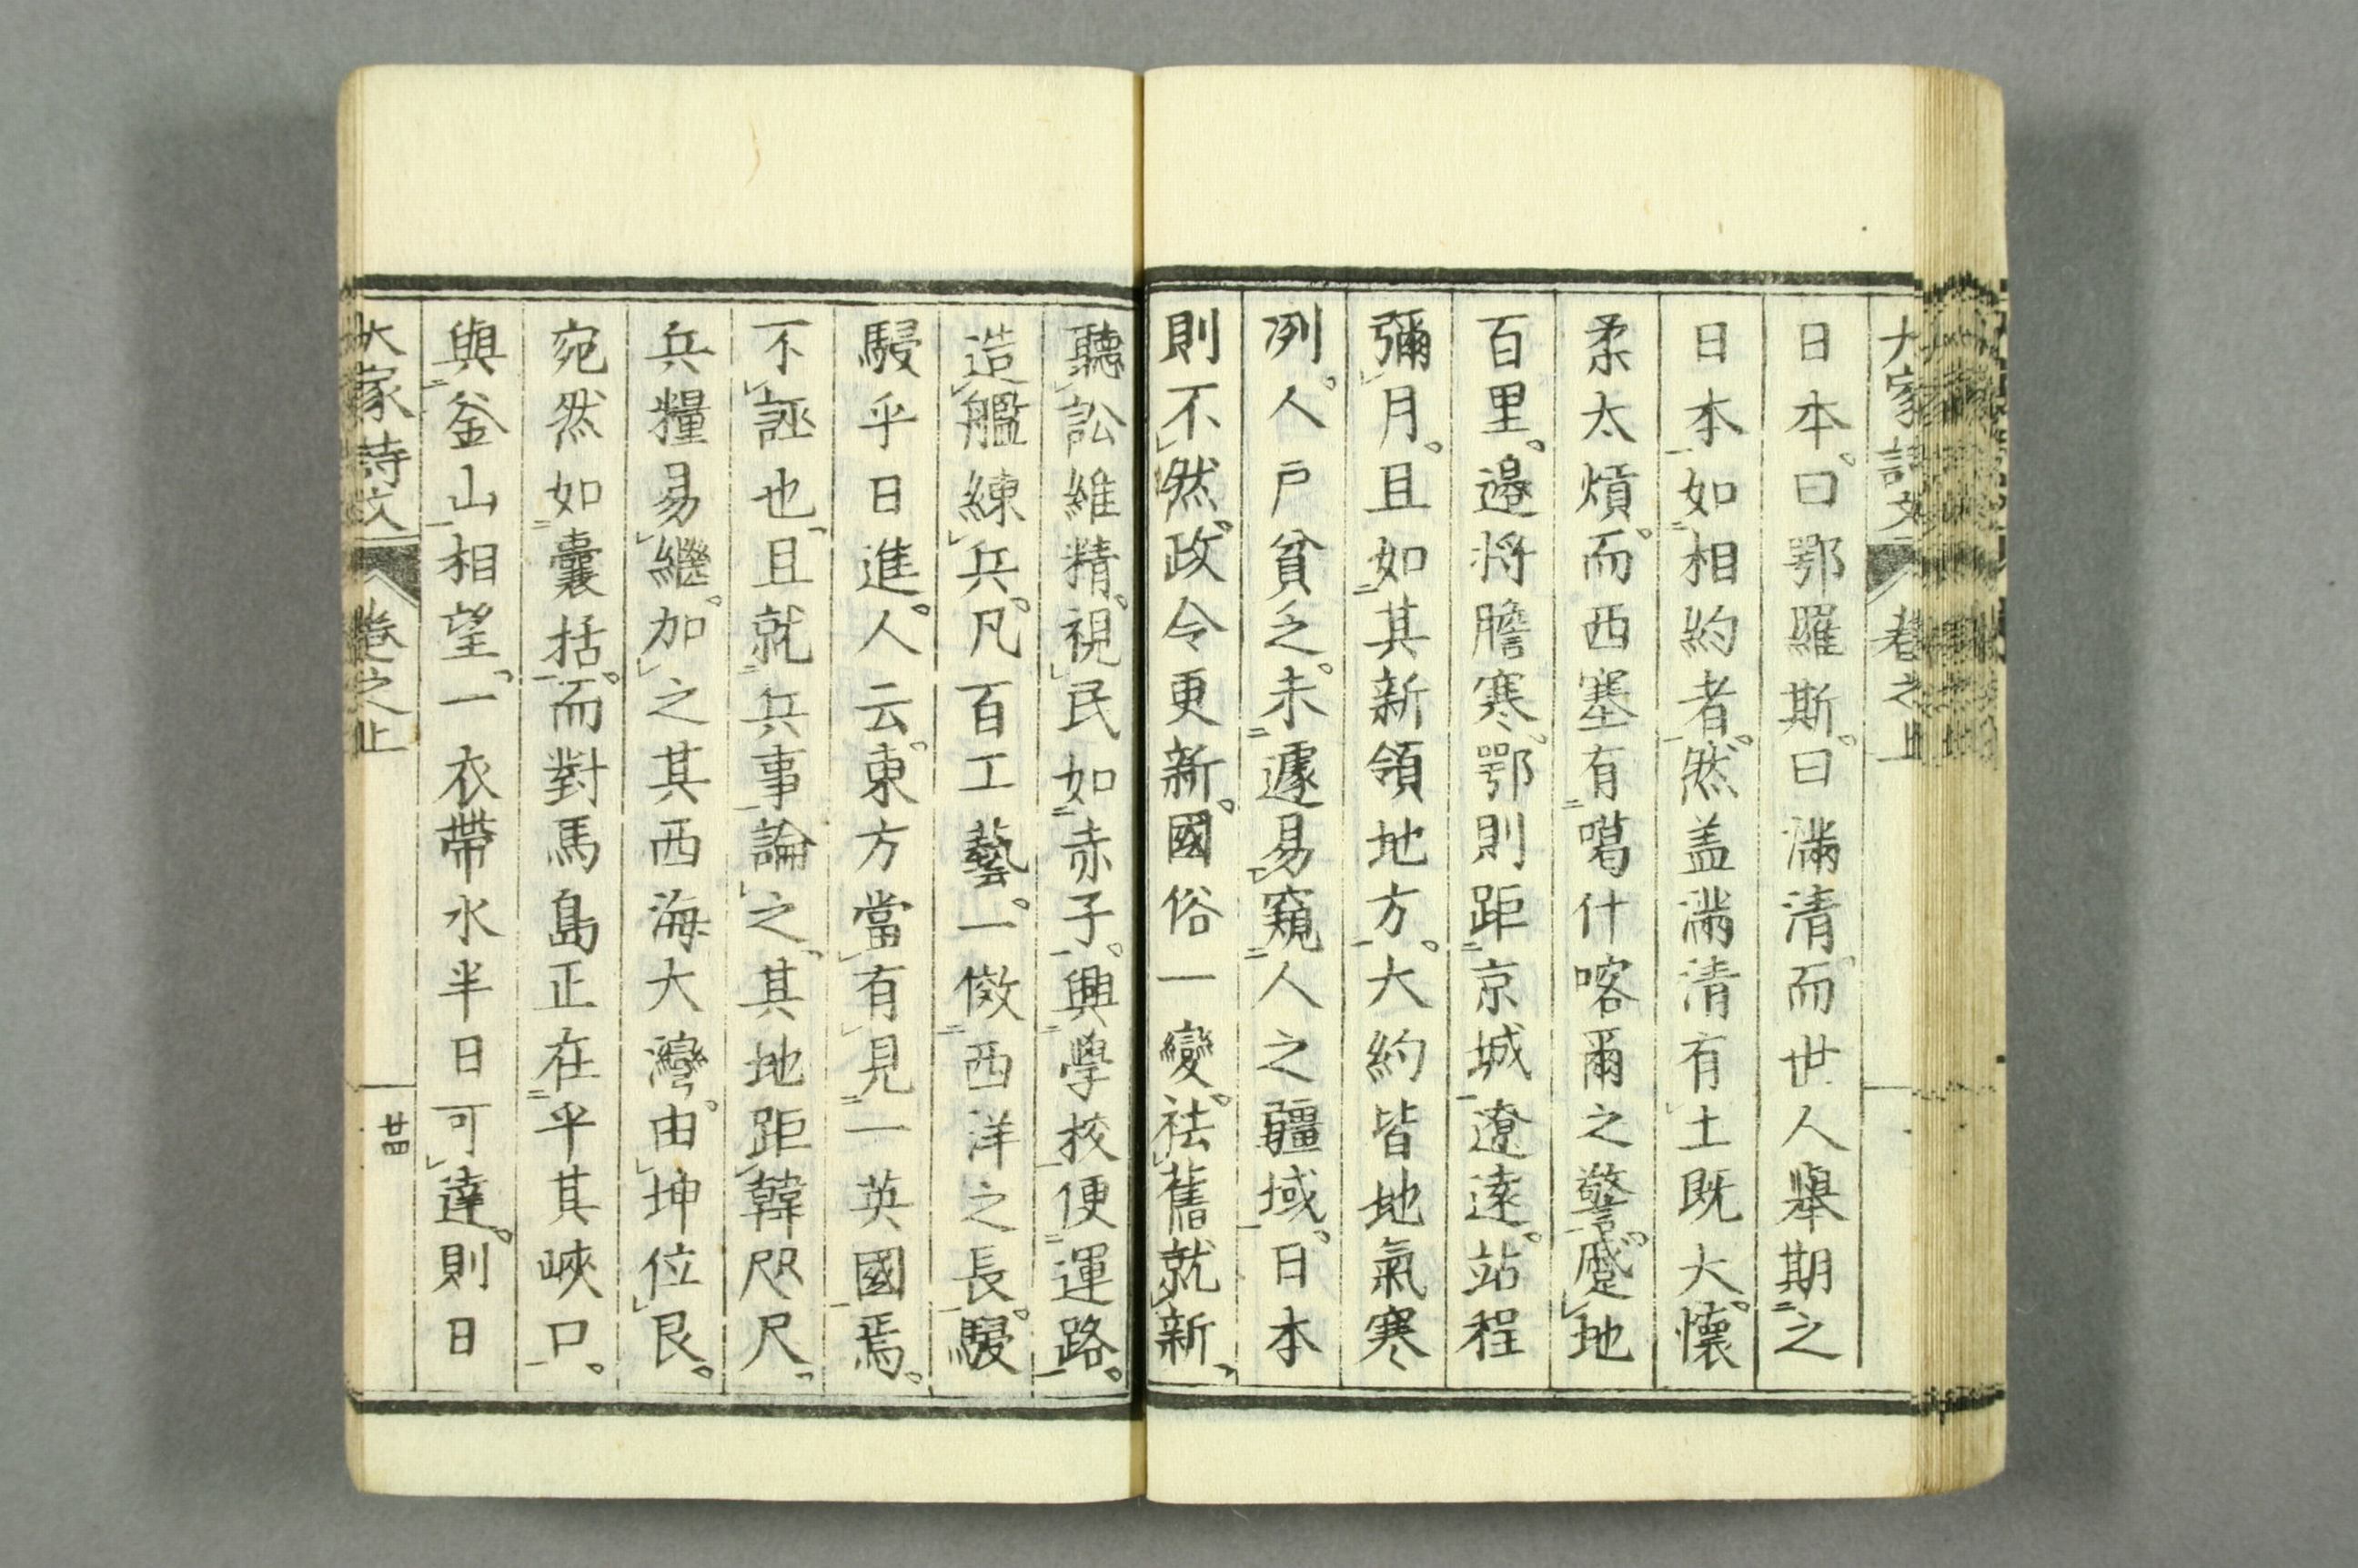 大家詩文 卷之上
日本。曰鄂羅斯。曰滿清。而世人舉期之
日本如相約者。然盖滿清有土既大。懷
柔太煩。而西塞有噶什喀爾之警。蹙地
百里。邊將膽寒。鄂則距京城遼遠。站程
彌月。且如其新領地方。大約皆地氣寒
冽。人戶貧乏。未遽易窺人之疆域。日本
則不然。政令更新。國俗一變。祛舊就新、
聽訟維精。視民如赤子。興學校便運路。
造艦練兵。凡百工藝。一倣西洋之長。駸
駸乎日進。人云。東方當有見一英國焉。
不誣也、且就兵事論之、其地距韓咫尺、
兵糧易繼。加之其西海大灣。由坤位艮。
宛然如囊括。而對馬島正在乎其峽口。
與釜山相望。一衣帶水半日可達。則日
大家詩文 卷之上 廿四